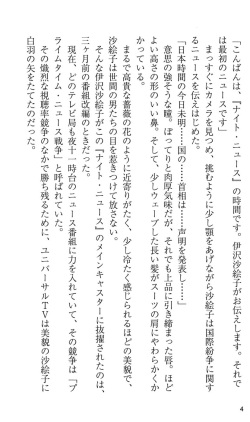 「こんばんは、『ナイト・ニュース』の時間です。伊沢沙絵子がお伝えします。それで
は最初のニュースです」
まっすぐにカメラを見つめ、挑むように少し顎をあげながら沙絵子は国際紛争に関す
るニュースを伝えはじめた。
「日本時間の今日未明……国の……首相は……声明を発表し……」
意思の強そうな瞳。ぽってりと肉厚気味だが、それでも上品に引き締まった唇。ほど
よい高さの形のいい鼻。そして、少しウェーブした長い髪がスーツの肩にやわらかく
かかっている。
まるで高貴な薔薇の花のように近寄りがたく、少し冷たく感じられるほどの美貌で、
沙絵子は世間の男たちの目を惹きつけて放さない。
そんな伊沢沙絵子がこの『ナイト・ニュース』のメインキャスターに抜擢されたのは、
三ヶ月前の番組改編のときだった。
現在、どのテレビ局も夜十一時台のニュース番組に力を入れていて、その競争は「プ
ライムタイム・ニュース戦争」と呼ばれている。
その熾烈な視聴率競争のなかで勝ち残るために、ユニバーサルTVは美貌の沙絵子に
白羽の矢をたてたのだった。
4